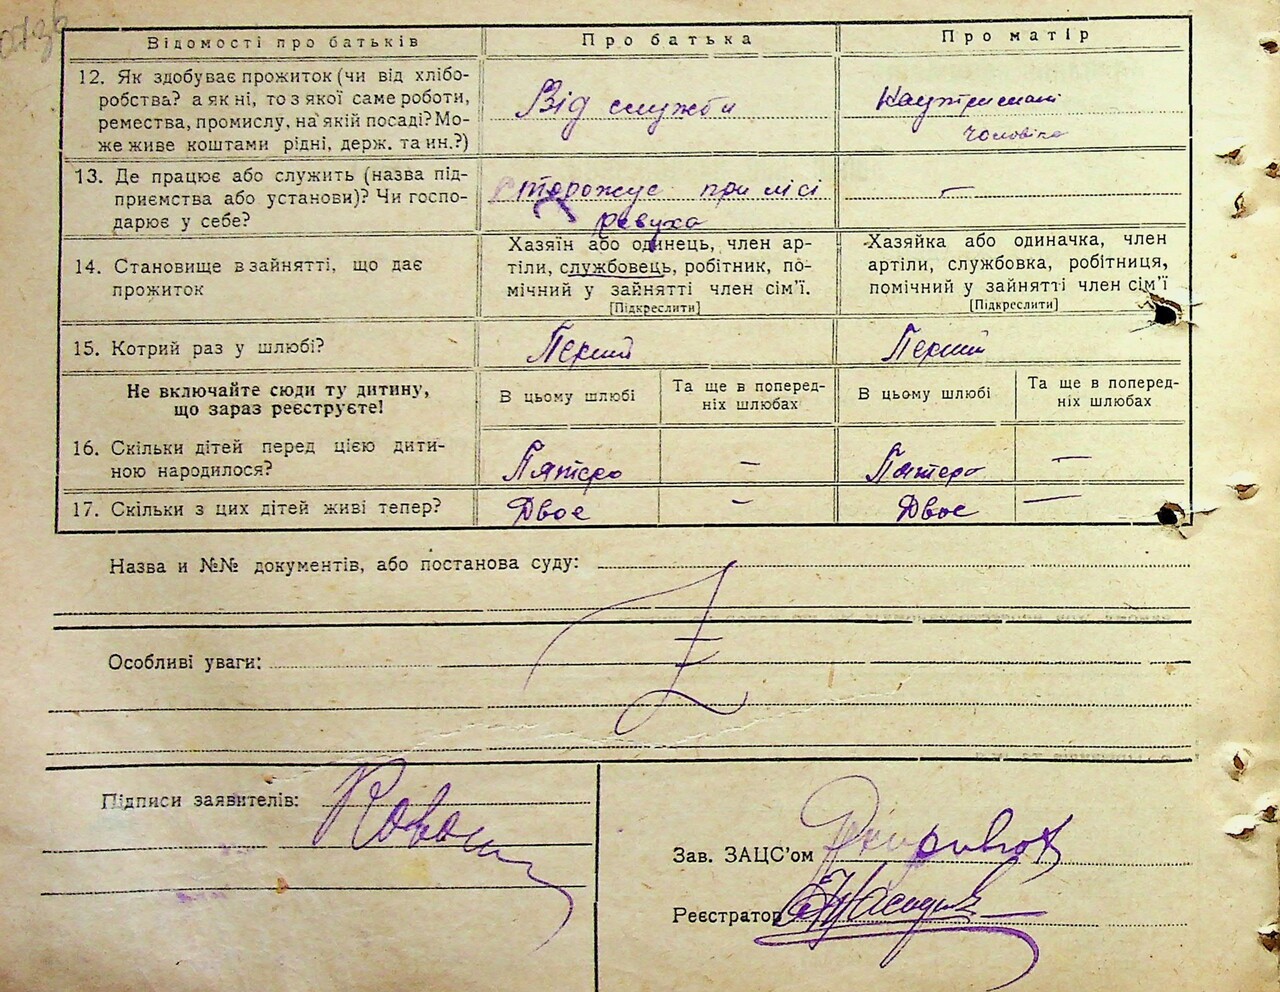 Відомості про батьків
Про батька
Про матір
12. Як здобуває прожиток (чи від хлібо-
робства? а як ні, то з якої саме роботи,
ремества, промислу, на якій посаді? Мо-
же живе коштами рідні, держ. та ин.?)
Від служби
На утриманні
чоловіка
13. Де працює або служить (назва під-
приємства або установи)? Чи госпо-
дарює у себе?
Сторожує при лісі
ревуха
—
14. Становище в зайнятті, що дає
прожиток
Хазяїн або одинець, член ар-
тіли, службовець, робітник, по-
мічний у зайнятті член сім'ї.
[Підкреслити]
Хазяйка або одиначка, член
артіли, службовка, робітниця,
помічний у зайнятті член сім'ї
[Підкреслити]
15. Котрий раз у шлюбі?
Перший
Перший
Не включайте сюди ту дитину,
що зараз реєструєте!
В цьому шлюбі
Та ще в поперед-
ніх шлюбах
В цьому шлюбі
Та ще в поперед-
ніх шлюбах
16. Скільки дітей перед цією дити-
ною народилося?
Пятеро
—
Пятеро
—
17. Скільки з цих дітей живі тепер?
Двоє
—
Двоє
—
Назва и №№ документів, або постанова суду:
Особливі уваги:
Підписи заявителів:
Зав. ЗАЦС'ом
Реєстратор